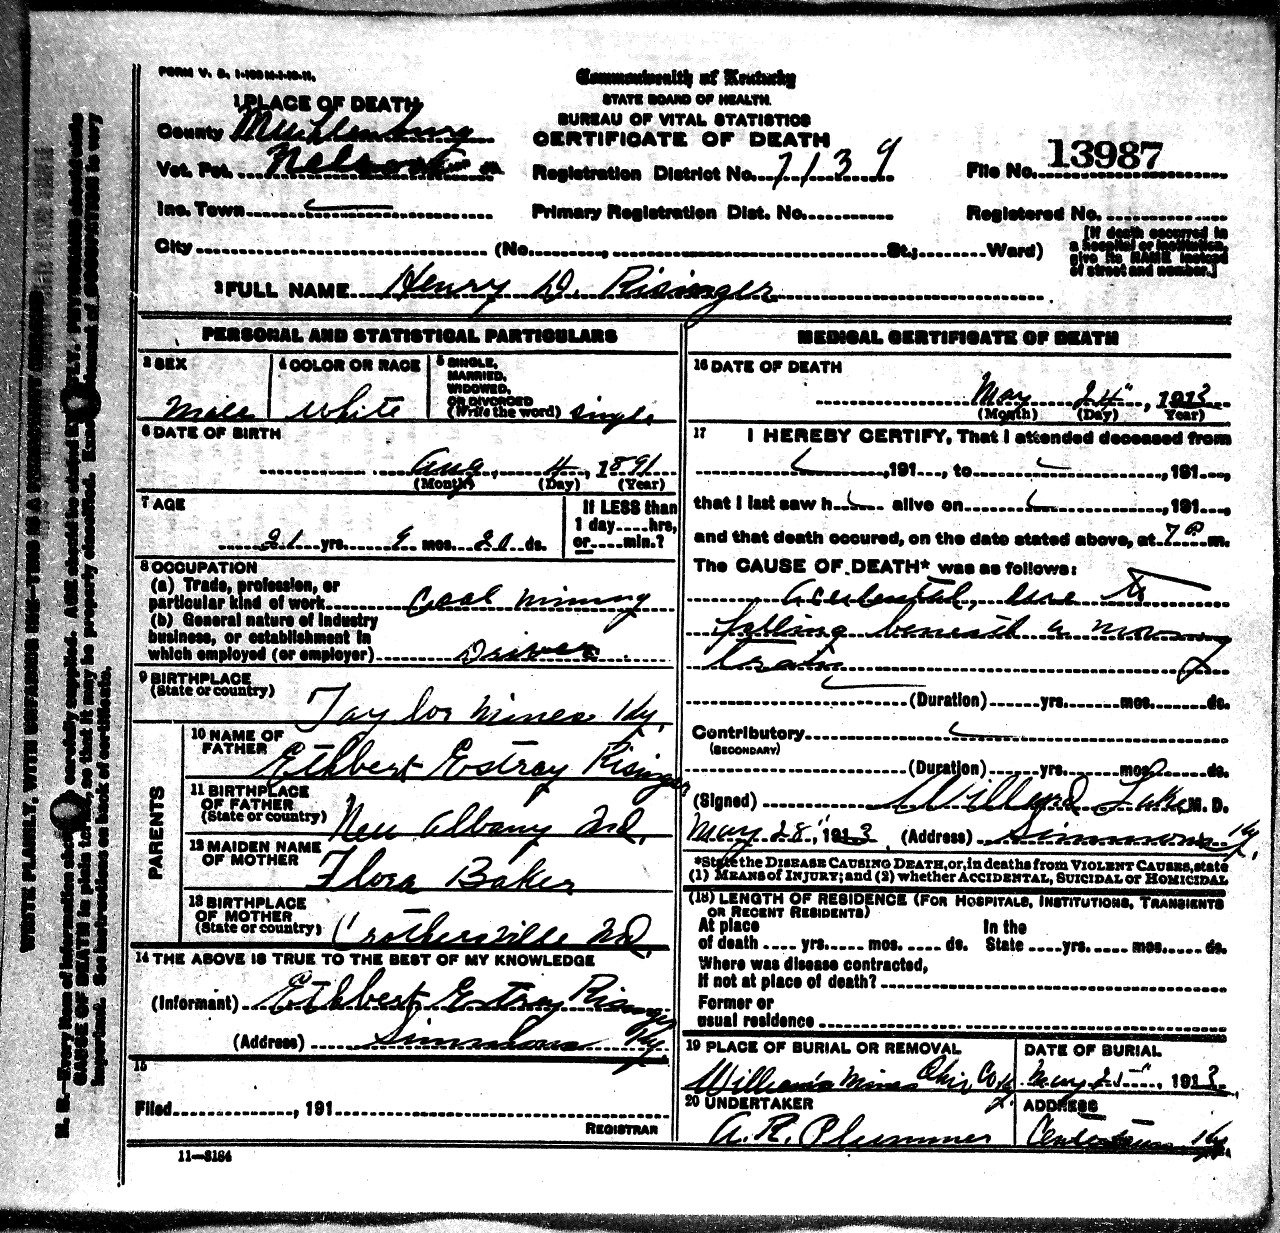 FORM V. S. 1-100 M-1-10-11.
Commonwealth of Kentucky
STATE BOARD OF HEALTH.
BUREAU OF VITAL STATISTICS
CERTIFICATE OF DEATH
1 PLACE OF DEATH
County Muhlenburg
Vot. Pct.
Registration District No. 7139
File No. 13987
Inc. Town
Primary Registration Dist. No.
Registered No.
City (No. , St.; Ward)
[If death occurred in a hospital or institution, give its NAME instead of street and number.]
2 FULL NAME Henry D. Risinger
PERSONAL AND STATISTICAL PARTICULARS
3 SEX
Male
4 COLOR OR RACE
White
5 SINGLE, MARRIED, WIDOWED, OR DIVORCED (Write the word) Single
6 DATE OF BIRTH
Aug. 4, 1891
(Month) (Day) (Year)
7 AGE
21 yrs. 9 mos. 20 ds.
If LESS than 1 day hrs, or min.?
8 OCCUPATION
(a) Trade, profession, or particular kind of work Coal mining
(b) General nature of industry business, or establishment in which employed (or employer) Driver
9 BIRTHPLACE
(State or country)
Taylor Mines Ky.
PARENTS
10 NAME OF FATHER
Ethbert Estray Risinger
11 BIRTHPLACE OF FATHER (State or country) New Albany Ind.
12 MAIDEN NAME OF MOTHER Flora Baker
13 BIRTHPLACE OF MOTHER (State or country) Crothersville Ind.
14 THE ABOVE IS TRUE TO THE BEST OF MY KNOWLEDGE
(Informant) Ethbert Estray Risinger
(Address) Simmons Ky.
15
Filed , 191
REGISTRAR
11—3184
MEDICAL CERTIFICATE OF DEATH
16 DATE OF DEATH
May 24", 1913
(Month) (Day) Year)
17 I HEREBY CERTIFY, That I attended deceased from
,191 , to ,191 ,
that I last saw h alive on ,191 ,
and that death occured, on the date stated above, at 7 P m.
The CAUSE OF DEATH* was as follows:
Accidental, due to
falling beneath a moving
train
(Duration) yrs. mos. ds.
Contributory
(SECONDARY)
(Duration) yrs. mos. ds.
(Signed) Willard Lake M. D.
May 28", 1913 (Address) Simmons Ky.
*State the DISEASE CAUSING DEATH, or, in deaths from VIOLENT CAUSES, state
(1) MEANS of INJURY; and (2) whether ACCIDENTAL, SUICIDAL or HOMICIDAL
(18) LENGTH OF RESIDENCE (FOR HOSPITALS, INSTITUTIONS, TRANSIENTS OR RECENT RESIDENTS)
At place of death yrs. mos. ds. In the State yrs. mos. ds.
Where was disease contracted,
If not at place of death?
Former or
usual residence
19 PLACE OF BURIAL OR REMOVAL
Williams Mines Ohio Co Ky.
DATE OF BURIAL
May 25", 1913
20 UNDERTAKER
A. R. Plummer
ADDRESS
Centertown Ky.
WRITE PLAINLY, WITH UNFADING INK—THIS IS A PERMANENT RECORD
N. B.—Every item of information should be carefully supplied. AGE should be stated EXACTLY. PHYSICIANS should state
CAUSE OF DEATH in plain terms, so that it may be properly classified. Exact statement of OCCUPATION is very
important. See instructions on back of certificate.